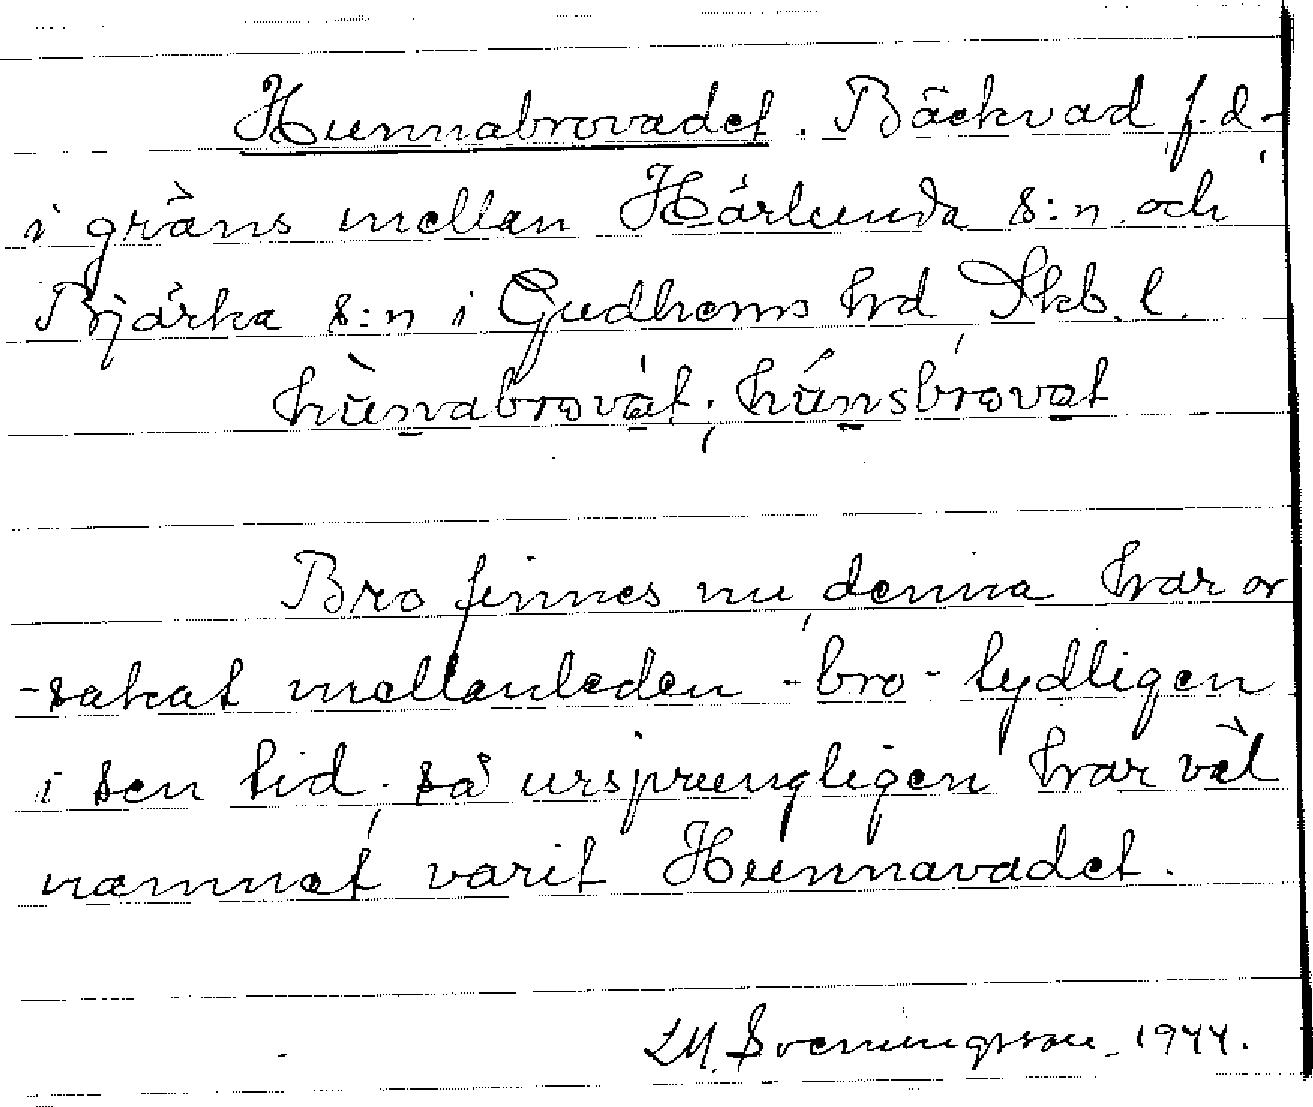 Hunnabrovadet. Bäckvad f. d.
i gräns mellan Härlunda s:n och
Bjärka s:n i Gudhems hrd, Skb. l.
hùnabrovat; húnsbrovat
Bro finnes nu, denna har or
-sakat mellanleden -bro- tydligen
i sen tid; så ursprungligen har väl
namnet varit Hunnavadet.
LM. Svenungsson 1944.